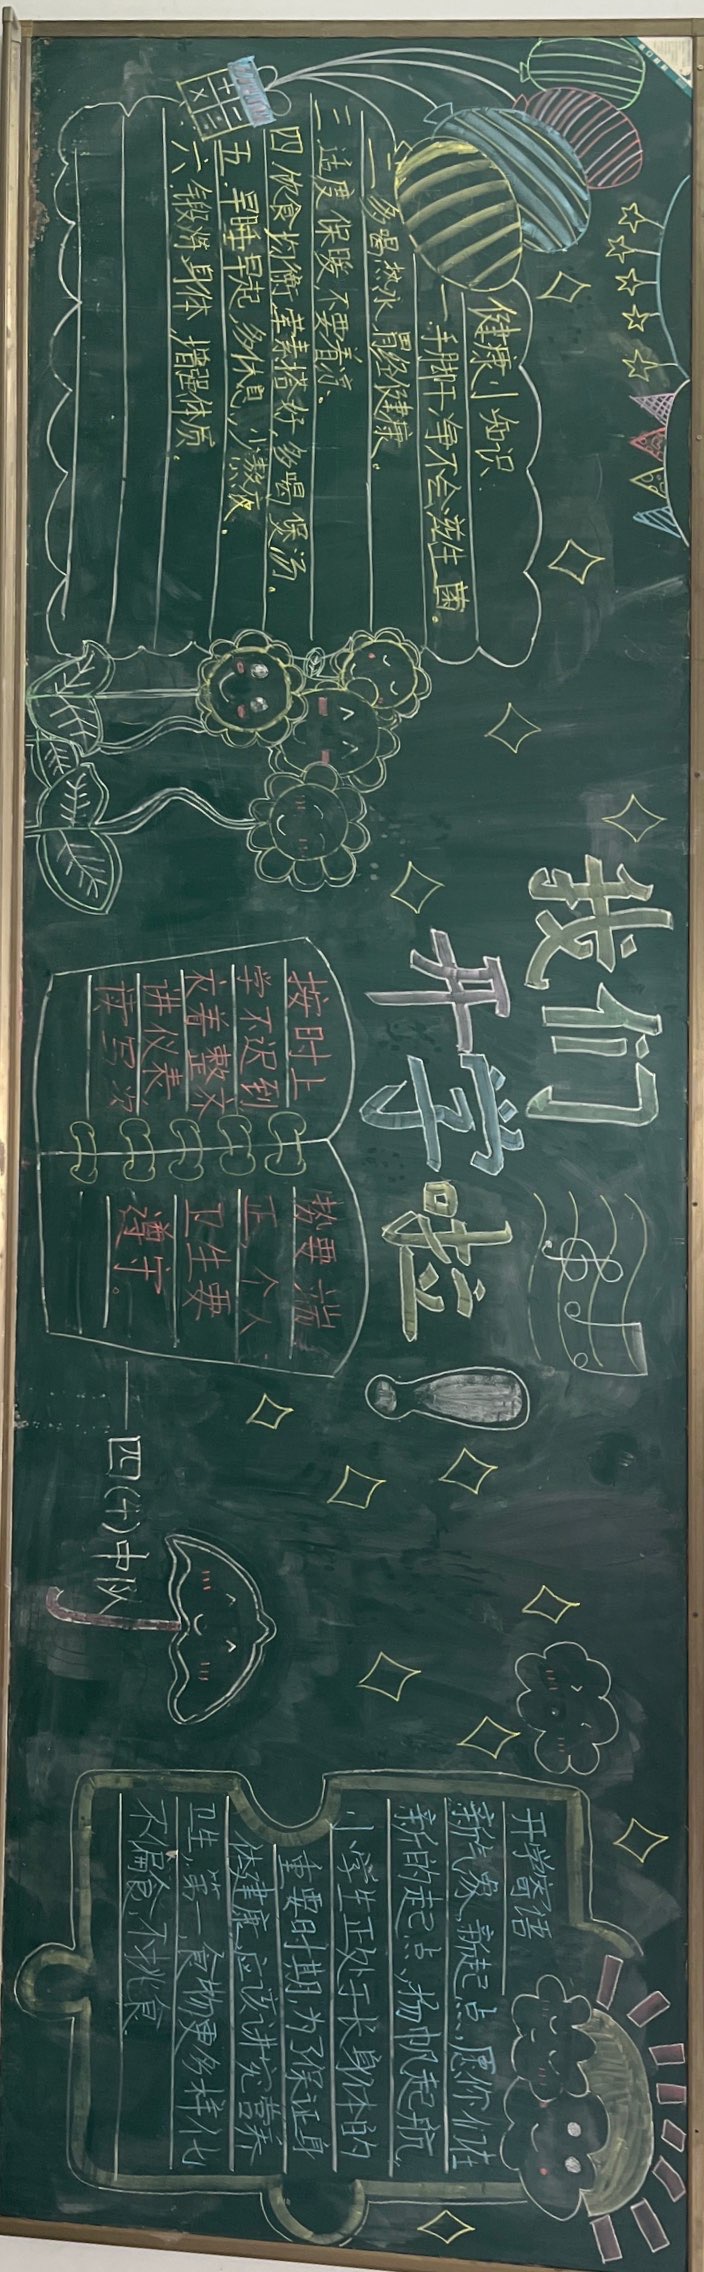 健康小知识
一手脚干净不会滋生菌。
二多喝热水,胃经健康。
三适度保暖,不要着凉。
四饮食均衡,荤素搭好,多喝煲汤。
五.早睡早起,多休息,少熬夜。
六锻炼身体,增强体质。
我们
开学啦
按时上
学不迟到
衣着整齐
讲仪表
读写姿
势要端
正,个人
卫生要
遵守。
——四(十)中队
开学寄语
新气象,新起点,愿你们在
新的起点,扬帆起航
小学生正处于长身体的
重要时期,为了保证身
体健康,应该讲究营养
卫生,第一,食物更多样化
不偏食,不挑食.